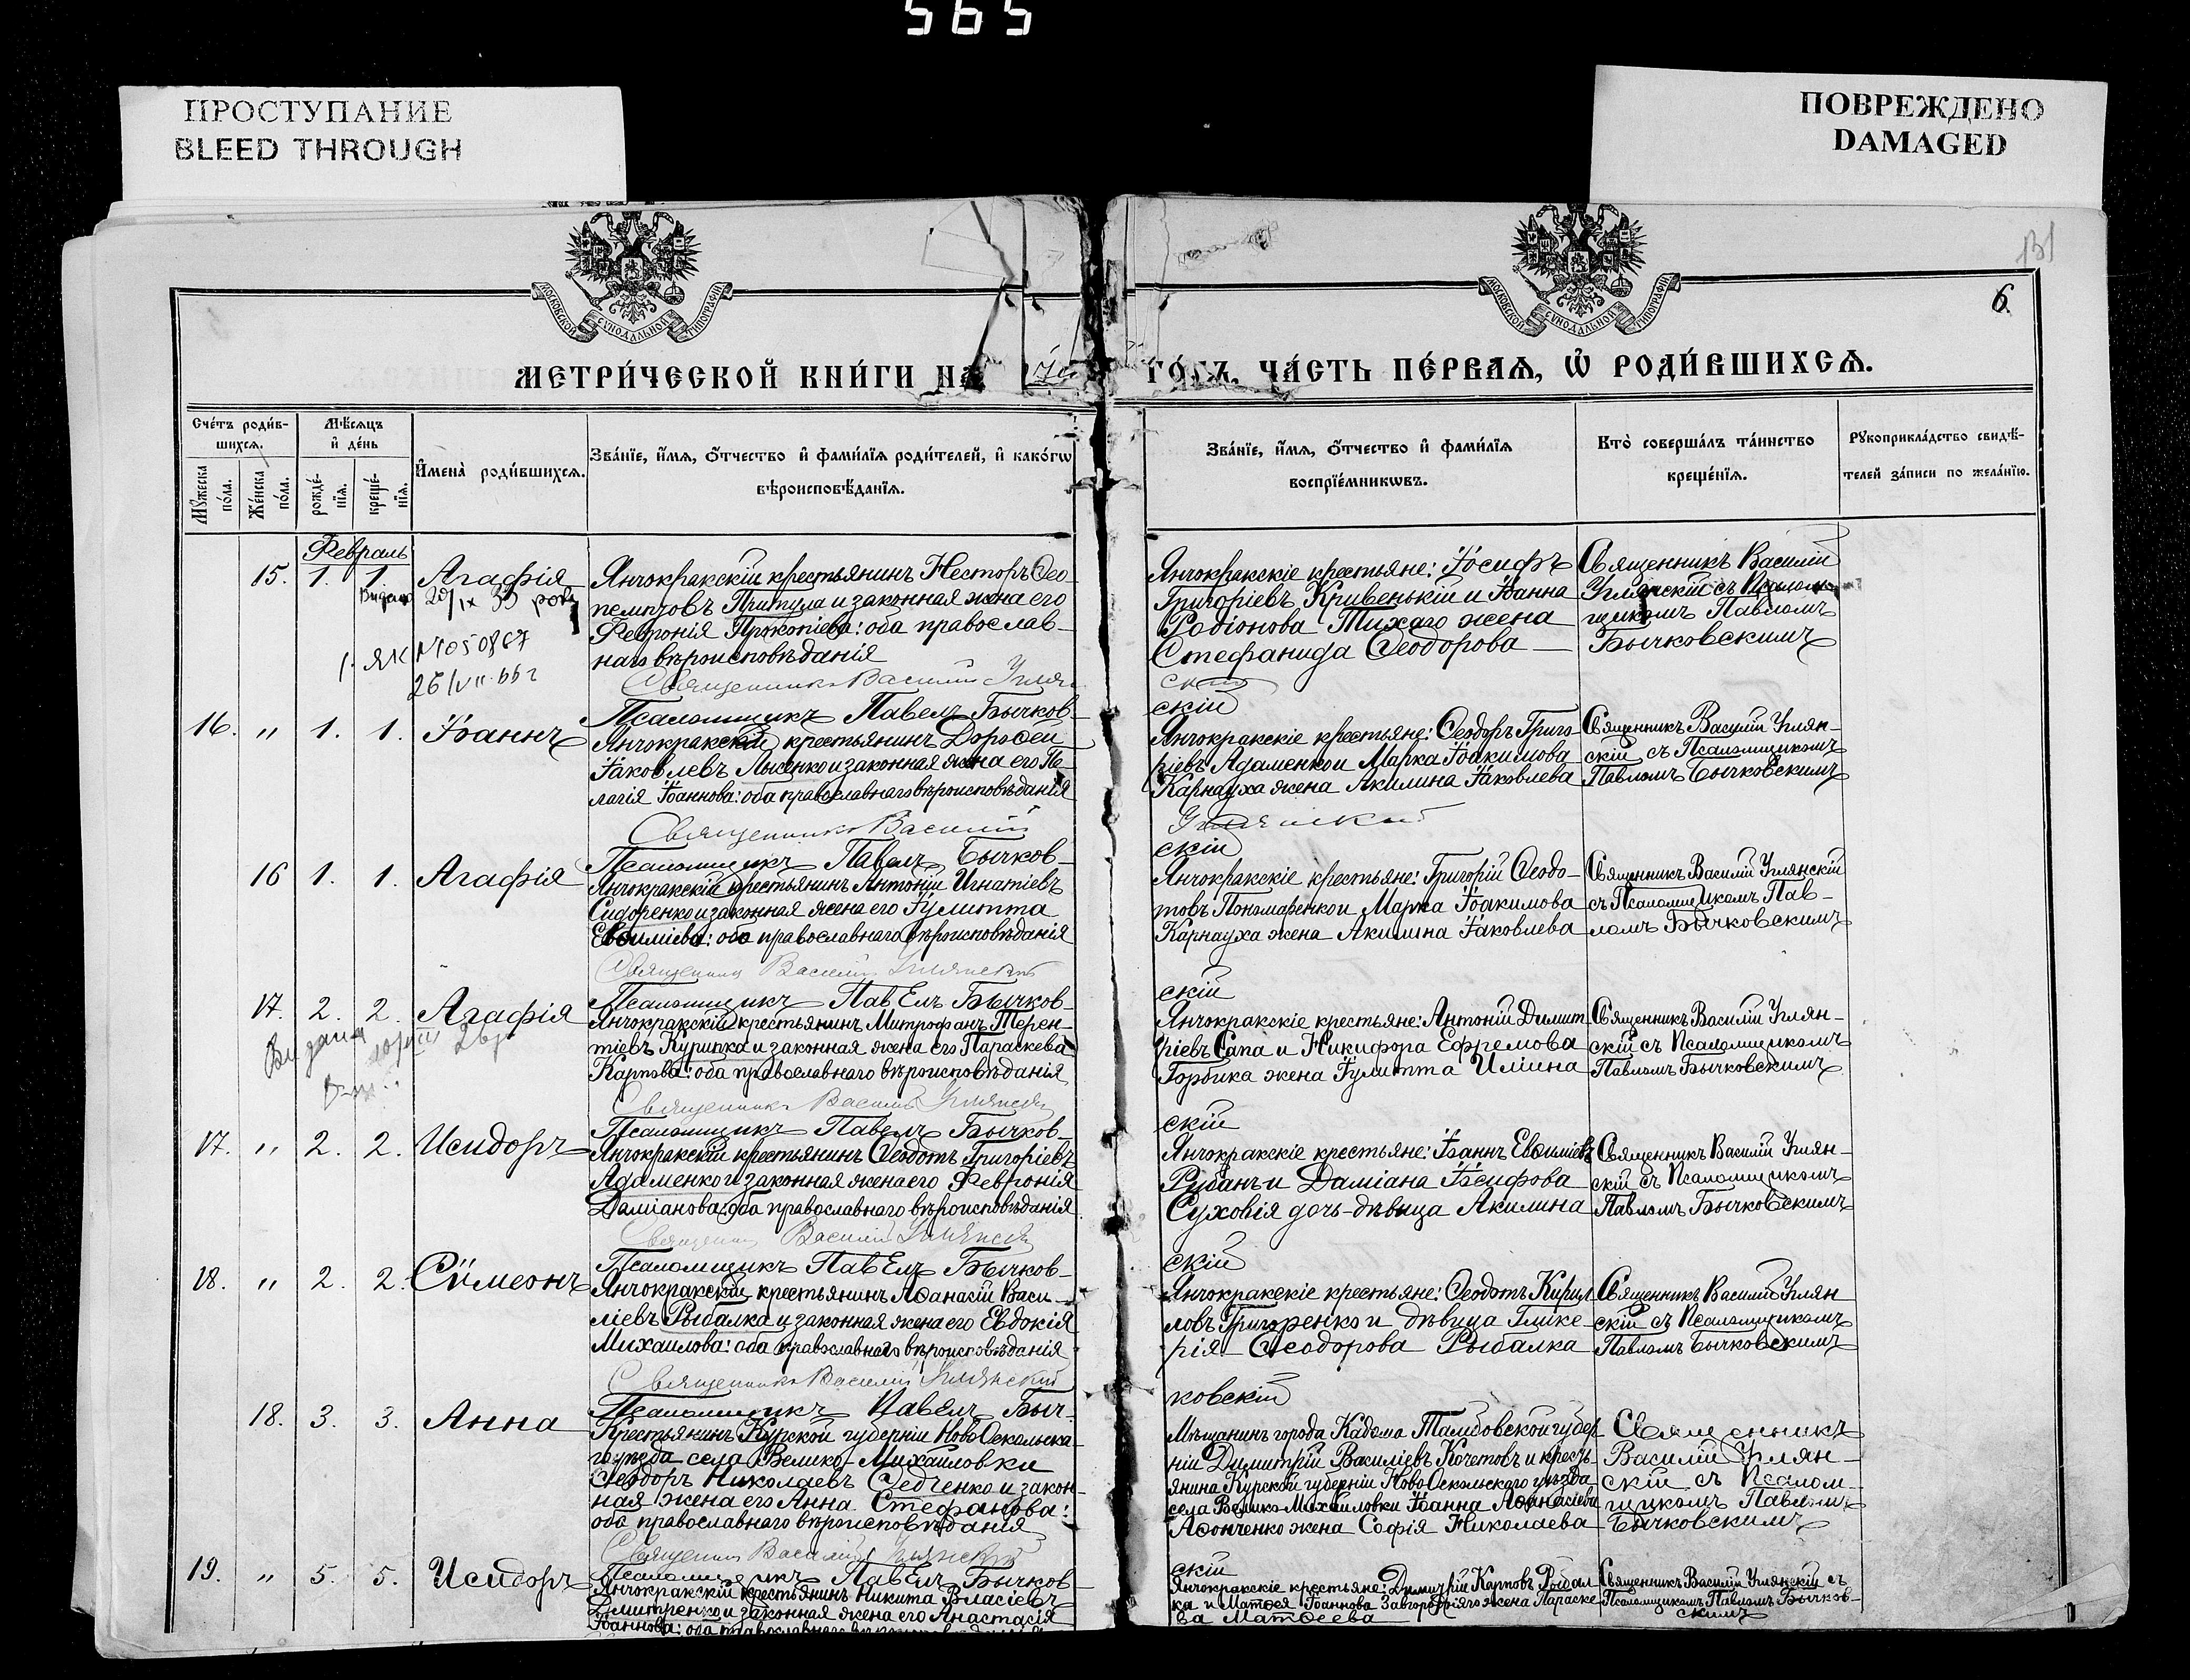 565
ПРОСТУПАНИЕ
BLEED THROUGH
ПОВРЕЖДЕНО
DAMAGED
131
6.
МОСКОВСКОЙ СУНОДАЛЬНОЙ ТИПОГРАФІИ
МОСКОВСКОЙ СУНОДАЛЬНОЙ ТИПОГРАФІИ
МЕТРИ́ЧЕСКОЙ КНИ́ГИ НА ГО́ДЪ, ЧА́СТЬ ПЕ́РВАѦ, Ѡ҆ РОДИ́ВШИХСѦ.
Сче́тъ роди́в-
шихсѧ.
Мꙋ́жеска по́ла.
Же́нска по́ла.
Мѣ́сѧцъ
и҆ де́нь
рожде́-
нїѧ.
креще́-
нїѧ.
И҆мена̀ роди́вшихсѧ.
Зва́нїе, и҆́мѧ, ѻ҆́тчество и҆ фамѝлїѧ роди́телей, и҆ како́гѡ
вѣроисповѣ́данїѧ.
Зва́нїе, и҆́мѧ, ѻ҆́тчество и҆ фами́лїѧ
воспрїе́мникѡвъ.
Кто̀ соверша́лъ та́инство
креще́нїѧ.
Рꙋкоприкла́дство свидѣ́-
телей за́писи по жела́нїю.
Февраль
15. 1. 1. Агафія
Видано 20/IX 35 року
1-ЯК №050867
26/VII-66 г
Янчокракскій крестьянинъ Несторъ Ѳео-
пемптовъ Притула и законная жена его
Февронія Прокопіева: оба православ-
наго вѣроисповѣданія
Священникъ Василій Углян
Псаломщикъ Павелъ Бычков-
Янчокракскіе крестьяне: Іосифъ
Григоріевъ Кривенькій и Іоанна
Родіонова Тихаго жена
Стефанида Ѳеодорова
скій
скій
Священникъ Василій
Углянскій съ Псалом-
щикомъ Павломъ
Бычковскимъ
16. " 1. 1. Іоаннъ
Янчокракскій крестьянинъ Дороѳеи
Іаковлевъ Лысенко и законная жена его Пе-
лагія Іоаннова: оба православнаго вѣроисповѣданія
Священникъ Василій
Псаломщикъ Павелъ Бычков-
Янчокракскіе крестьяне: Ѳеодоръ Григо-
ріевъ Адаменко и Марка Іоакимова
Карнауха жена Акилина Іаковлева
Углянский
скій
Священникъ Василій Углян-
скій съ Псаломщикомъ
Павломъ Бычковскимъ
16 1. 1. Агафія
Янчокракскій крестьянинъ Антоній Игнатіевъ
Сидоренко и законная жена его Іулитта
Евѳиміева: оба православнаго вѣроисповѣданія
Священникъ Василій Углянскій
Псаломщикъ Павелъ Бычков-
Янчокракскіе крестьяне: Григорій Ѳеодо-
товъ Пономаренко и Марка Іоакимова
Карнауха жена Акилина Іаковлева
скій
Священникъ Василій Углянскій
съ Псаломщикомъ Пав-
ломъ Бычковскимъ
17. 2. 2. Агафія
Видана
Янчокракскій крестьянинъ Митрофанъ Терен-
тіевъ Курипка и законная жена его Параскева
Карпова: оба православнаго вѣроисповѣданія
Священникъ Василій Углянскій
Псаломщикъ Павелъ Бычков-
Янчокракскіе крестьяне: Антоній Димит-
ріевъ Сапа и Никифора Ефремова
Горбика жена Іулитта Иліина
скій
Священникъ Василій Углян-
скій съ Псаломщикомъ
Павломъ Бычковскимъ
17. " 2. 2. Исидоръ
Янчокракскій крестьянинъ Ѳеодотъ Григоріевъ
Адаменко и законная жена его Февронія
Даміанова: оба православнаго вѣроисповѣданія
Священникъ Василій Углянскій
Псаломщикъ Павелъ Бычков-
Янчокракскіе крестьяне: Іоаннъ Евѳиміевъ
Рубанъ и Даміана Іосифова
Суховія дочь-дѣвица Акилина
скій
Священникъ Василій Углян-
скій съ Псаломщикомъ
Павломъ Бычковскимъ
18. " 2. 2. Сѵмеонъ
Янчокракскій крестьянинъ Аѳанасій Васи-
ліевъ Рыбалка и законная жена его Евдокія
Михаилова: оба православнаго вѣроисповѣданія
Священникъ Василій Углянский
Псаломщикъ Павелъ Быч-
Янчокракскіе крестьяне: Ѳеодотъ Кирил-
ловъ Григоренко и дѣвица Глике-
рія Ѳеодорова Рыбалка
ковскій
Священникъ Василій Углян
скій съ Псаломщикомъ
Павломъ Бычковскимъ
18. 3. 3. Анна
Крестьянинъ Курской губерніи НовоОскольска-
го уѣзда села Велико-Михаиловки
Ѳеодоръ Николаевъ Ѳедченко и закон-
ная жена его Анна Стефанова:
оба православнаго вѣроисповѣданія
Священникъ Василій Углянскій
Псаломщикъ Павелъ Бычков
Мѣщанинъ города Кадома Тамбовской губер
ніи Димитрій Василіевъ Кочетовъ и кресть-
янина Курской губерніи НовоОскольскаго уѣзда
села Велико-Михаиловки Іоанна Аѳанасіева
Аѳонченко жена Софія Николаева
скій
Священникъ
Василій Углян-
скій съ Псалом-
щикомъ Павломъ
Бычковскимъ
19. " 5. 5. Исидоръ
Янчокракскій крестьянинъ Никита Власіевъ
Дмитренко и законная жена его Анастасія
Іоаннова: оба православнаго вѣроисповѣданія
Янчокракскіе крестьяне: Димитрій Карповъ Рыбал
ка и Матѳея Іоаннова Завгороднягo жена Параске
ва Матѳеева
Священникъ Василій Углянскій съ
Псаломщикомъ Павломъ Бычков-
скимъ